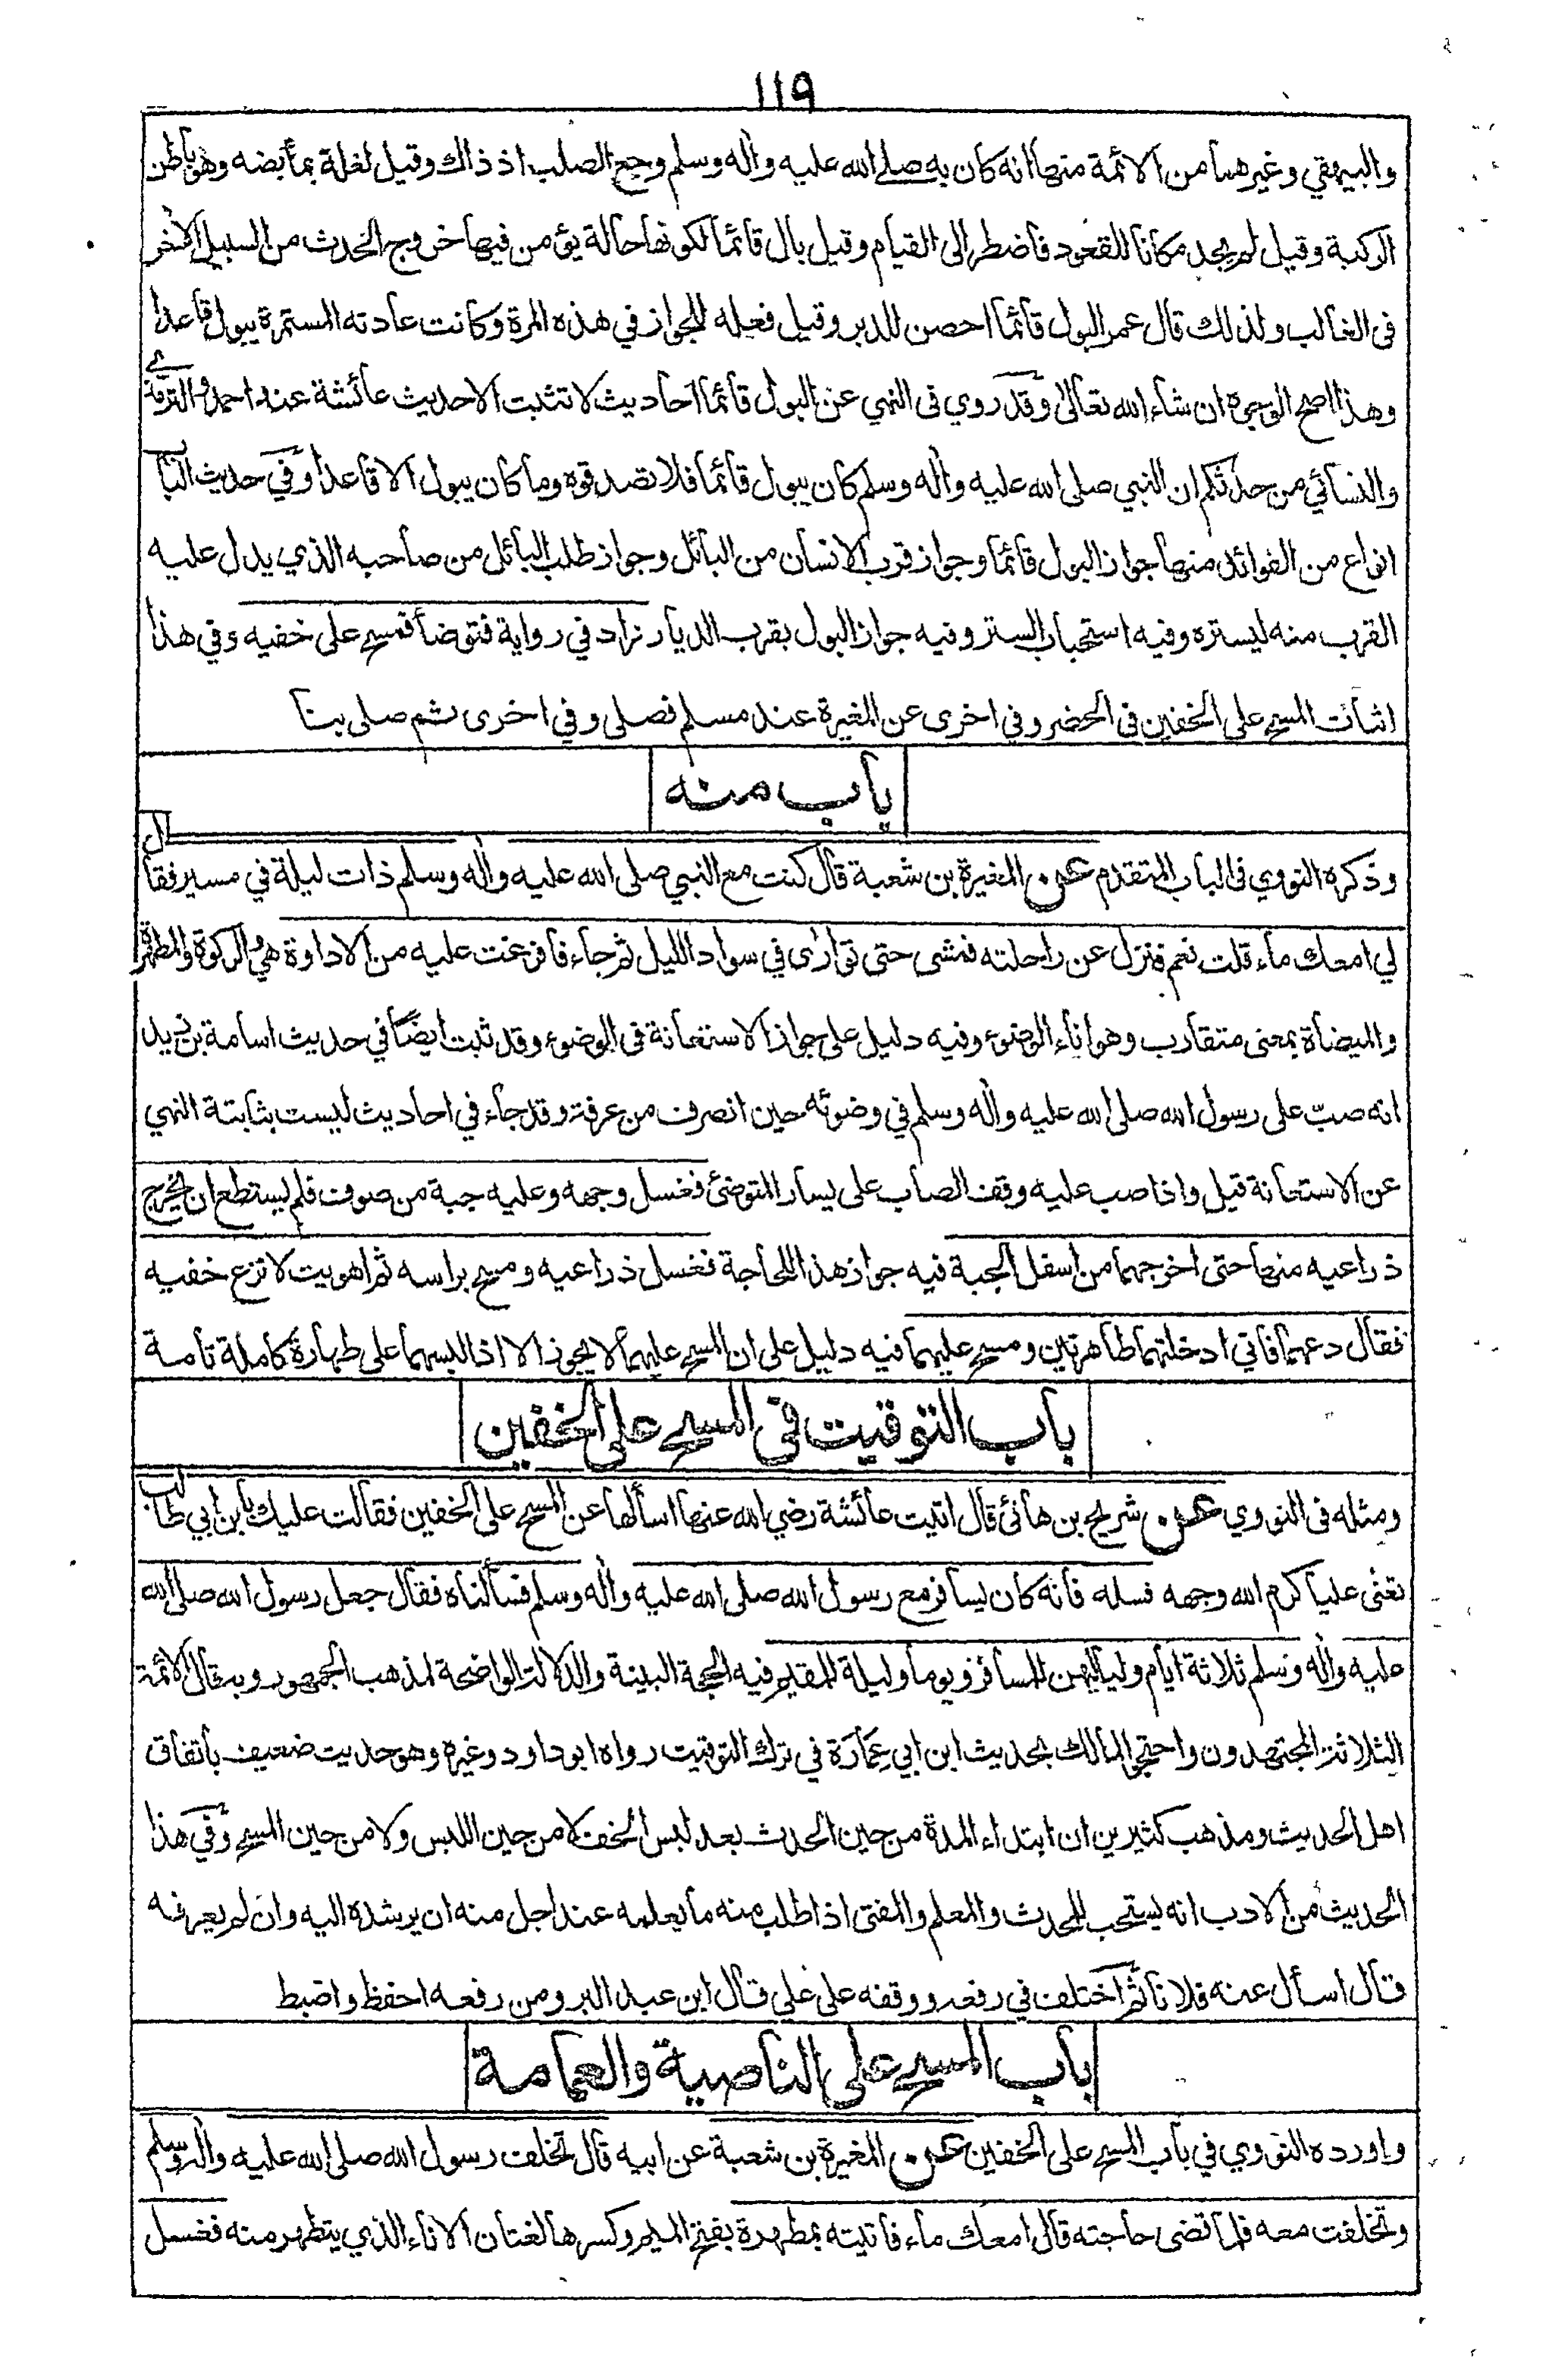 ١١٩
والبيهقي وغيرهما من الائمة منها انه كان به صلى الله عليه واله وسلم وجع الصلب اذ ذاك وقيل لعلة بمأبضه وهو باطن
الركبة وقيل لم يجد مكانا للقعود فاضطر الى القيام وقيل بال قائما لكونها حالة يؤمن فيها خروج الحدث من السبيل الاخر
فى الغالب ولذلك قال عمر البول قائما احصن للدبر وقيل فعله للجواز في هذه المرة وكانت عادته المستمرة يبول قاعدا
وهذا اصح الوجوه ان شاء الله تعالى وقد روي فى النهي عن البول قائما احاديث لا تثبت الا حديث عائشة عند احمد والترمذي
والنسائي من حدثكم ان النبي صلى الله عليه واله وسلم كان يبول قائما فلا تصدقوه وما كان يبول الا قاعدا وفي حديث الباب
انواع من الفوائد منها جواز البول قائما وجواز قرب الانسان من البائل وجواز طلب البائل من صاحبه الذي يدل عليه
القرب منه ليستره وفيه استحباب الستر وفيه جواز البول بقرب الديار زاد في رواية فتوضأ فمسح على خفيه وفي هذا
اثبات المسح على الخفين فى الحضر وفي اخرى عن المغيرة عند مسلم فصلى وفي اخرى ثم صلى بنا
باب منه
وذكره النووي فى الباب المتقدم عن المغيرة بن شعبة قال كنت مع النبي صلى الله عليه واله وسلم ذات ليلة في مسير فقال
لي امعك ماء قلت نعم فنزل عن راحلته فمشى حتى توارى في سواد الليل ثم جاء فافرغت عليه من الاداوة هي والركوة والمطهرة
والميضاة بمعنى متقارب وهو اناء الوضوء وفيه دليل على جواز الاستعانة فى الوضوء وقد ثبت ايضا في حديث اسامة بن زيد
انه صبّ على رسول الله صلى الله عليه واله وسلم في وضوئه حين انصرف من عرفة وقد جاء في احاديث ليست بثابتة النهي
عن الاستعانة قيل واذا صب عليه وقف الصاب على يسار المتوضئ فغسل وجهه وعليه جبة من صوف فلم يستطع ان يخرج
ذراعيه منها حتى اخرجهما من اسفل الجبة فيه جواز هذا للحاجة فغسل ذراعيه ومسح براسه ثم اهويت لانزع خفيه
فقال دعهما فاني ادخلتهما طاهرتين ومسح عليهما فيه دليل على ان المسح عليهما لا يجوز الا اذا لبسهما على طهارة كاملة تامة
باب التوقيت فى المسح على الخفين
ومثله فى النووي عن شريح بن هانئ قال اتيت عائشة رضي الله عنها اسألها عن المسح على الخفين فقالت عليك بابن ابي طالب
تعنى عليا كرم الله وجهه فسله فانه كان يسافر مع رسول الله صلى الله عليه واله وسلم فسألناه فقال جعل رسول الله صلى الله
عليه واله وسلم ثلاثة ايام ولياليهن للمسافر ويوما وليلة للمقيم فيه الحجة البينة والدلالة الواضحة لمذهب الجمهور وبه قال الائمة
الثلاثة المجتهدون واحتج المالك بحديث ابن ابي عِمَارَة في ترك التوقيت رواه ابو داود وغيره وهو حديث ضعيف باتفاق
اهل الحديث ومذهب كثيرين ان ابتداء المدة من حين الحدث بعد لبس الخف لا من حين اللبس ولا من حين المسح وفي هذا
الحديث من الادب انه يستحب للمحدث والمعلم والمفتى اذا طلب منه ما يعلمه عند اجل منه ان يرشده اليه وان لم يعرفه
قال اسأل عنه فلانا ثم اختلف في رفعه ووقفه على علي قال ابن عبد البر ومن رفعه احفظ واضبط
باب المسح على الناصية والعمامة
واورده النووي في باب المسح على الخفين عن المغيرة بن شعبة عن ابيه قال تخلف رسول الله صلى الله عليه واله وسلم
وتخلفت معه فلما قضى حاجته قال امعك ماء فاتيته بمطهرة بفتح الميم وكسرها لغتان الاناء الذي يتطهر منه فغسل